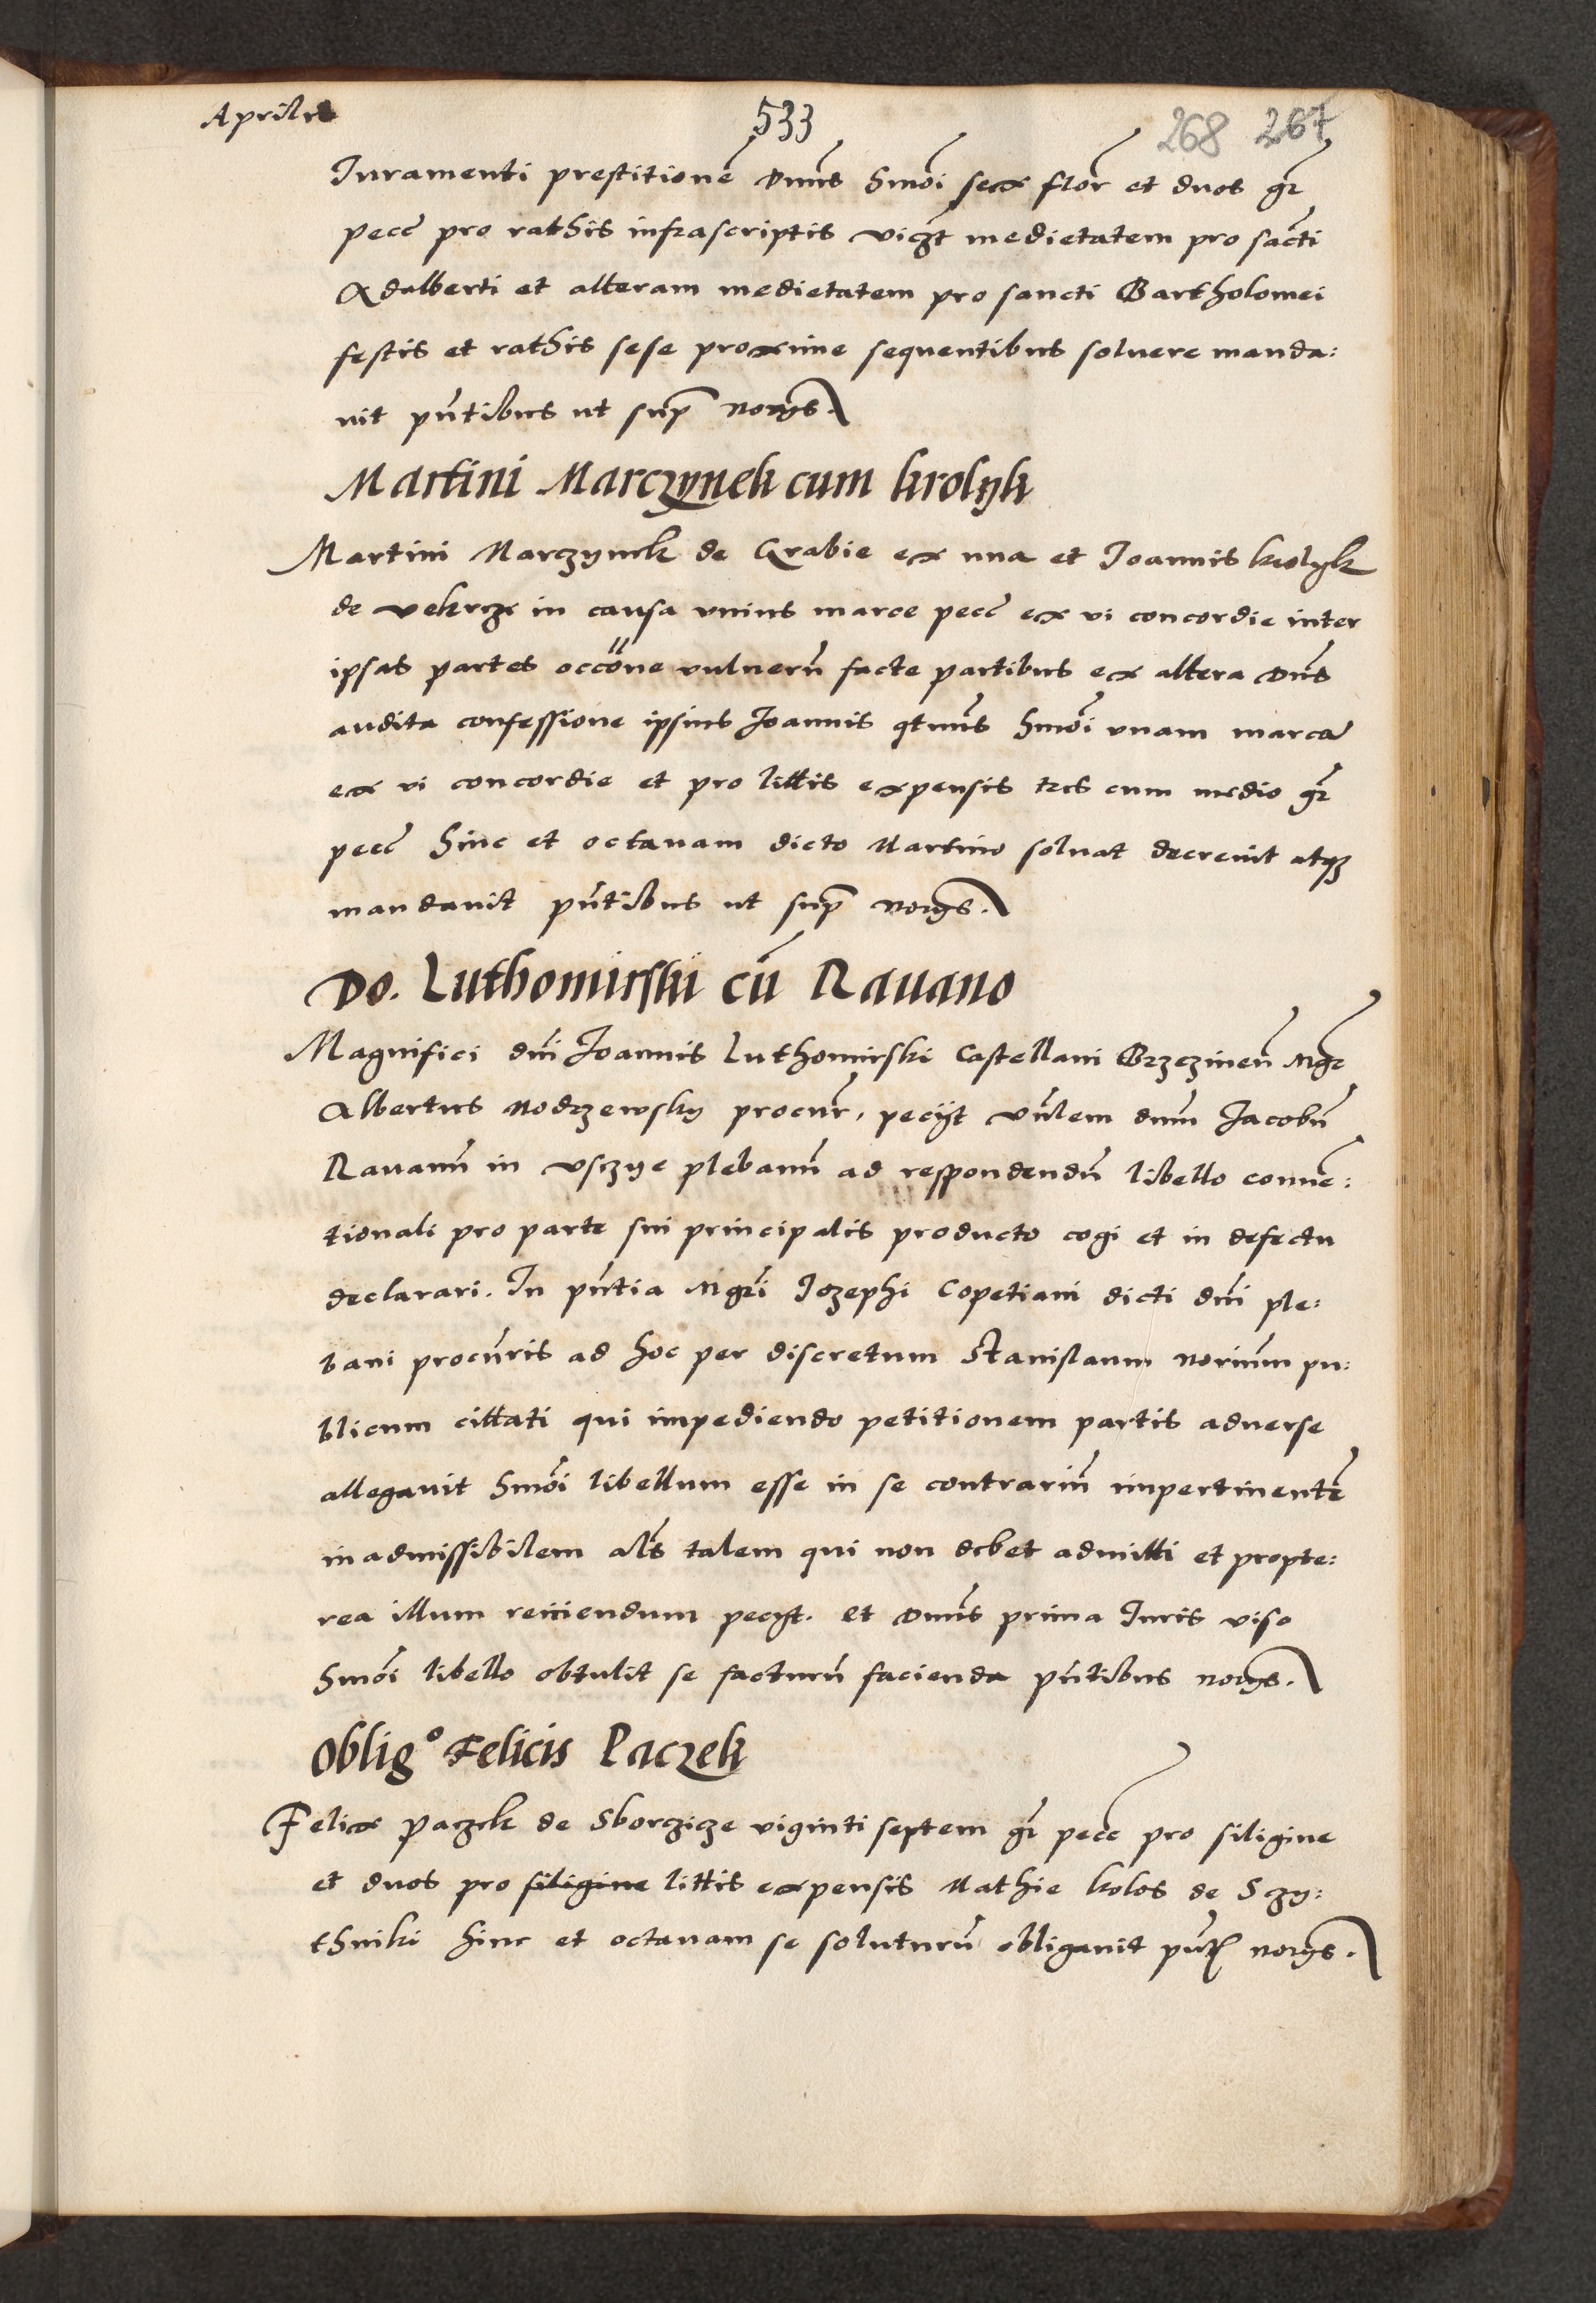 Aprilis
533
268 267
Iuramenti prestitionē Dnns hmōi sex flor et duos gr
pecc pro rathis infrascriptis vicʒt medietatem pro sācti
Adalberti et alteram medietatem pro sancti Bartholomei
festis et rathis sese proxime sequentibus soluere manda:
uit pñtibus ut sup
Martini Marczynek cum krolyk
Martini Marczynek de Grabie ex una et Joannis krolyk
de in causa unius marce pecc ex vi concordie inter
ipsas partes occōne vulnerū facte partibus ex altera Dns
audita confessione ipsius Joannis hmōi unam marcā
ex vi concordie et pro littis expensis tres cum medio gr
pecc hinc et octauam dicto Martino soluat decreuit atqʒ
mandauit pñtibus ut sup
Do. Luthomirski cū Rauano
Magnifici dni Joannis Luthomirski Castellani Brzezinen Mgr
Albertus Modrzewsky procur, pecijt vn̄lem dnm Jacobū
Rauanū in vsczye plebanū ad respondendū libello conuē:
tionali pro parte sui principalis producto cogi et in defectu
declarari. In pñtia Mgri Iozephi Copetiani dicti dni ple:
bani procuris ad hoc per discretum Stanislaum norium pu:
blicum cittati qui impediendo petitionem partis aduerse
allegauit hmōi libellum esse in se contrariū impertinentē
inadmissibilem als talem qui non debet admitti et propte:
rea illum reiiciendum pecyt. et Dnns prima Iuris viso
hmōi libello obtulit se facturū facienda pñtibus
Oblig° Felicis Paczek
Felix paczek de Sborczicze viginti septem gr pecc pro siligine
et duos pro siligine littis expensis Mathie kolos de Sczy:
thniki hinc et octauam se soluturū obligauit